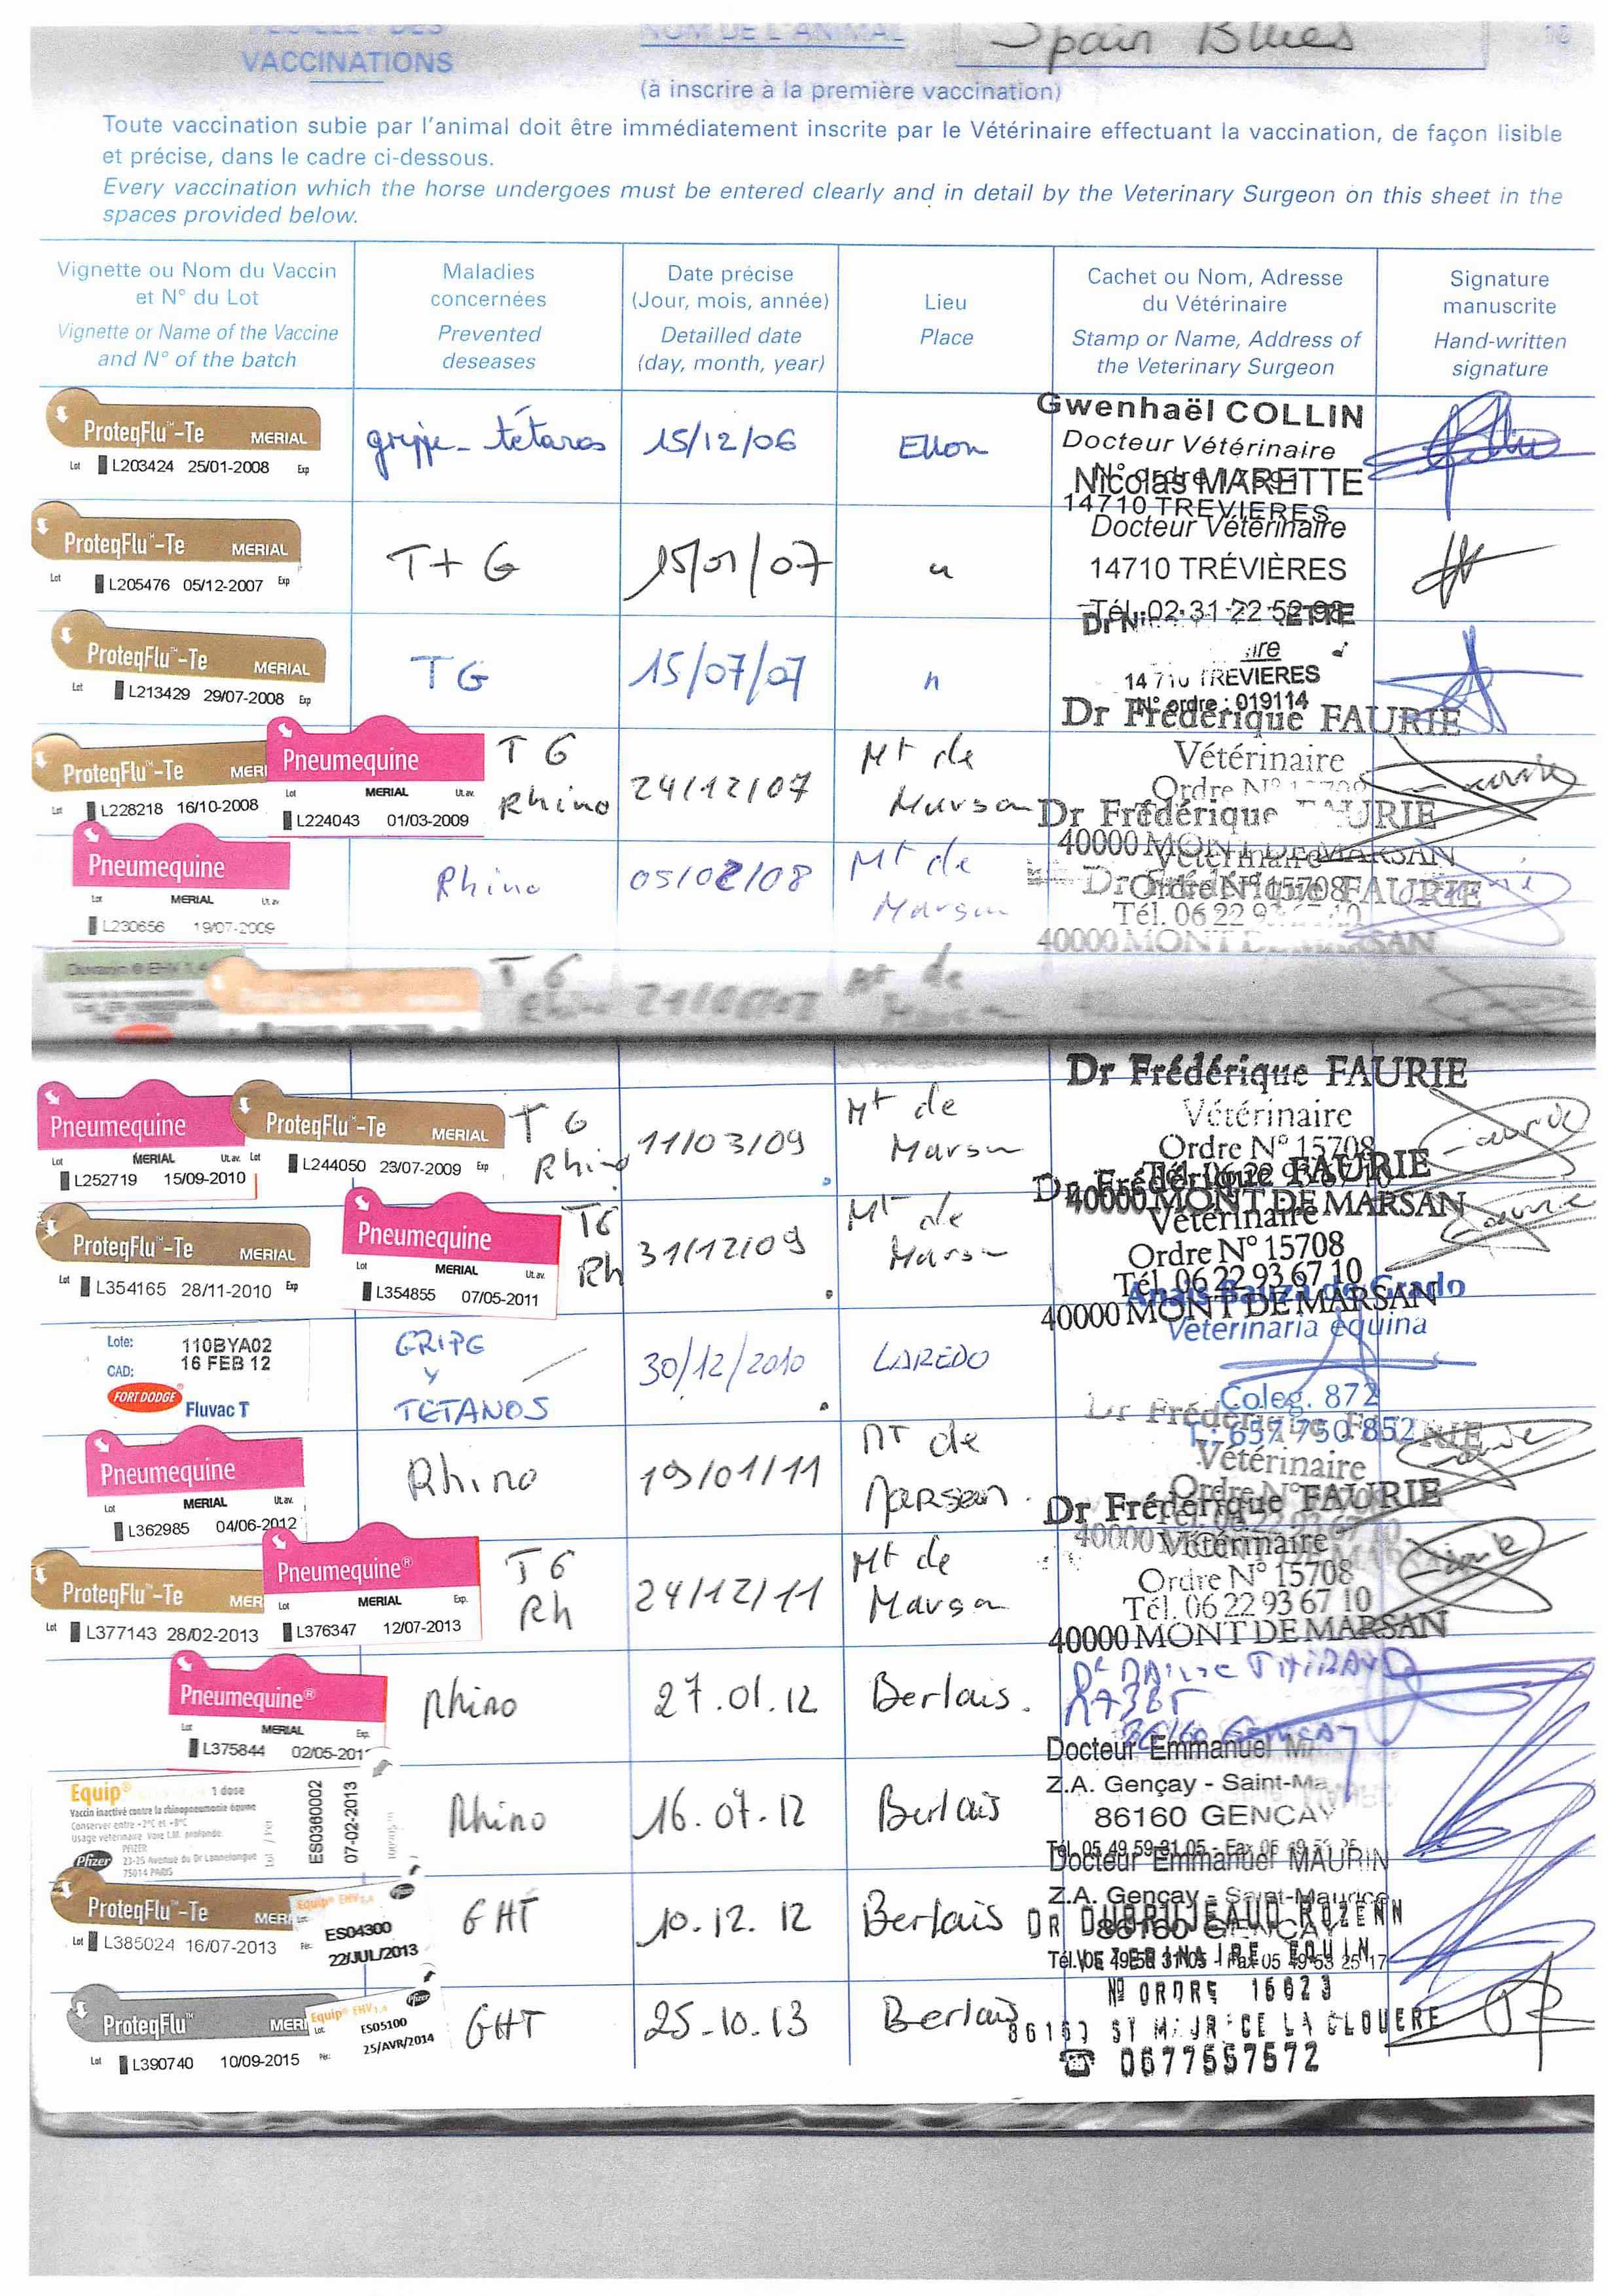 VACCINATIONS
NOM DE L'ANIMAL
Spain Blues
(à inscrire à la première vaccination)
Toute vaccination subie par l'animal doit être immédiatement inscrite par le Vétérinaire effectuant la vaccination, de façon lisible
et précise, dans le cadre ci-dessous.
Every vaccination which the horse undergoes must be entered clearly and in detail by the Veterinary Surgeon on this sheet in the
spaces provided below.
Vignette ou Nom du Vaccin
et N° du Lot
Vignette or Name of the Vaccine
and N° of the batch
Maladies
concernées
Prevented
deseases
Date précise
(Jour, mois, année)
Detailled date
(day, month, year)
Lieu
Place
Cachet ou Nom, Adresse
du Vétérinaire
Stamp or Name, Address of
the Veterinary Surgeon
Signature
manuscrite
Hand-written
signature
ProteqFlu™-Te MERIAL
Lot L203424 25/01-2008 Exp
grippe - tétanos
15/12/06
Ellon
Gwenhaël COLLIN
Docteur Vétérinaire
14710 TREVIERES
ProteqFlu™-Te MERIAL
Lot L205476 05/12-2007 Exp
T + G
15/01/07
"
Nicolas MARETTE
Docteur Vétérinaire
14710 TRÉVIÈRES
Tél. 02 31 22 52
ProteqFlu™-Te MERIAL
Lot L213429 29/07-2008 Exp
T G
15/07/07
"
14710 TREVIERES
N° ordre : 019114
ProteqFlu™-Te MERI
Lot L228218 16/10-2008
Pneumequine
Lot MERIAL Ut. av.
L224043 01/03-2009
T G
Rhino
24/12/07
Mt de
Marsan
Dr Frédérique FAURIE
Vétérinaire
40000 MONT DE MARSAN
Pneumequine
Lot MERIAL Ut. av.
L230656 19/07-2009
Rhino
05/02/08
Mt de
Marsan
Dr Frédérique FAURIE
Vétérinaire
Ordre N° 15708
40000 MONT DE MARSAN
T G
Rhino
Mt de
Dr Frédérique FAURIE
Pneumequine
Lot MERIAL Ut. av.
L252719 15/09-2010
ProteqFlu™-Te MERIAL
Lot L244050 23/07-2009 Exp
T G
Rhino
11/03/09
Mt de
Marsan
Dr Frédérique FAURIE
Vétérinaire
Ordre N° 15708
40000 MONT DE MARSAN
ProteqFlu™-Te MERIAL
Lot L354165 28/11-2010 Exp
Pneumequine
Lot MERIAL Ut. av.
L354855 07/05-2011
TG
Rh
31/12/09
Mt de
Marsan
Dr Frédérique FAURIE
Vétérinaire
Ordre N° 15708
Tél. 06 22 93 67 10
40000 MONT DE MARSAN
Lote: 110BYA02
CAD: 16 FEB 12
FORT DODGE
Fluvac T
GRIPE
Y
TETANOS
30/12/2010
LAREDO
Grado
Veterinaria équina
Coleg. 872
T: 657 750 852
Pneumequine
Lot MERIAL Ut. av.
L362985 04/06-2012
Rhino
19/01/11
MT de
Marsan.
Vétérinaire
ProteqFlu™-Te MER
Lot L377143 28/02-2013
Pneumequine®
Lot MERIAL Exp.
L376347 12/07-2013
T G
Rh
24/12/11
Mt de
Marsan
Dr Frédérique FAURIE
Vétérinaire
Ordre N° 15708
Tél. 06 22 93 67 10
40000 MONT DE MARSAN
Pneumequine®
Lot MERIAL Exp.
L375844 02/05-201
Rhino
27.01.12
Berlais.
86160 GENCAY
Equip® 1 dose
Vaccin inactivé contre la rhinopneumonie équine
Conserver entre +2°C et +8°C
Usage vétérinaire Voie I.M. profonde
PFIZER
Pfizer 23-25 Avenue du Dr Lannelongue
75014 PARIS
ES0360002
07-02-2013
Rhino
16.07.12
Berlais
Docteur Emmanuel
Z.A. Gençay - Saint-Ma
86160 GENCAY
Tél. 05 49 59 31 05
ProteqFlu™-Te MERI
Lot L385024 16/07-2013
Equip® EHV 1,4
ES04300
22/JUL/2013
GHT
10.12.12
Berlais
Docteur Emmanuel MAURIN
Z.A. Gençay - Saint-Maurice
86160 GENCAY
ProteqFlu™ MERI
Lot L390740 10/09-2015
Equip® EHV 1,4 Pfizer
Lot: ES05100
25/AVR/2014
GHT
25.10.13
Berlais
DR DUBRUJEAUD ROZENN
VETERINAIRE EQUIN
N° ORDRE 16623
ST MAURICE LA CLOUERE
☎ 0677557572